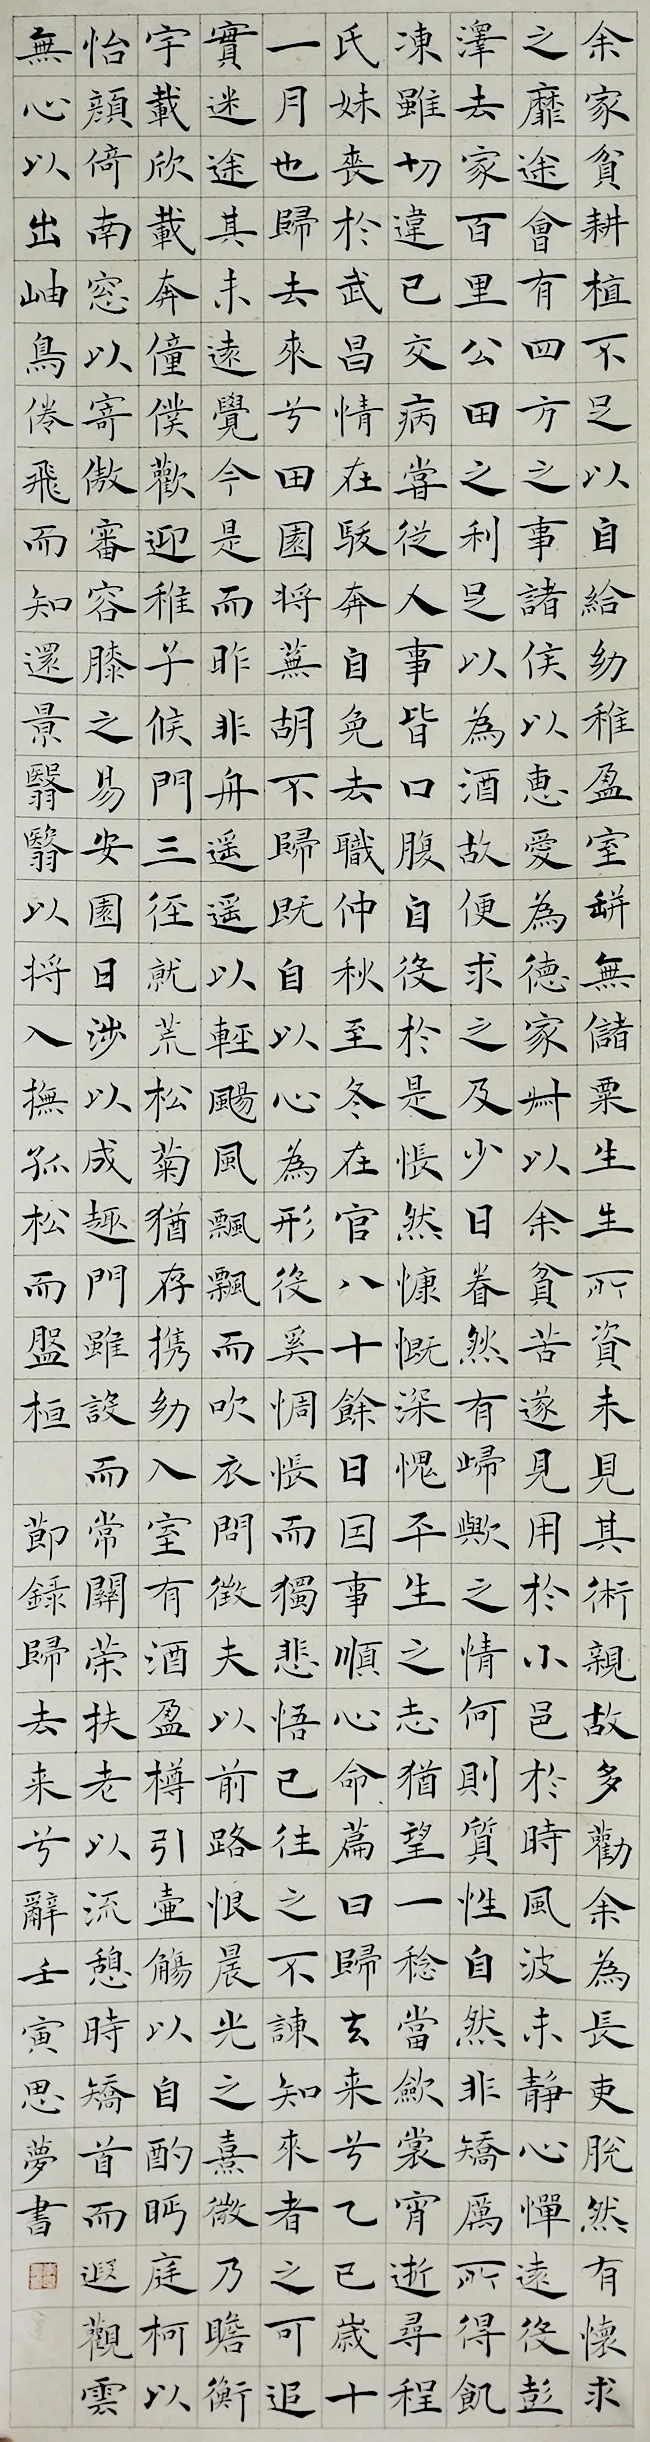 余家貧耕植不足以自給幼稚盈室缾無儲粟生生所資未見其術親故多勸余為長吏脫然有懷求
之靡途會有四方之事諸侯以惠愛為德家艸以余貧苦遂見用於小邑於時風波未靜心憚遠役彭
澤去家百里公田之利足以為酒故便求之及少日眷然有歸歟之情何則質性自然非矯厲所得飢
凍雖切違已交病嘗從人事皆口腹自役於是悵然慷慨深愧平生之志猶望一稔當斂裳宵逝尋程
氏妹喪於武昌情在駿奔自免去職仲秋至冬在官八十餘日因事順心命篇曰歸去来兮乙巳歲十
一月也歸去來兮田園将蕪胡不歸既自以心為形役奚惆悵而獨悲悟已往之不諫知來者之可追
實迷途其未遠覺今是而昨非舟遥遥以輕颺風飄飄而吹衣問徵夫以前路恨晨光之熹微乃瞻衡
宇載欣載奔僮僕歡迎稚子候門三徑就荒松菊猶存携幼入室有酒盈樽引壷觴以自酌眄庭柯以
怡顔倚南窓以寄傲審容膝之易安園日涉以成趣門雖設而常關荣扶老以流憩時矯首而遐觀雲
無心以出岫鳥倦飛而知還景翳翳以将入撫孤松而盤桓 節録歸去来兮辭壬寅思夢書